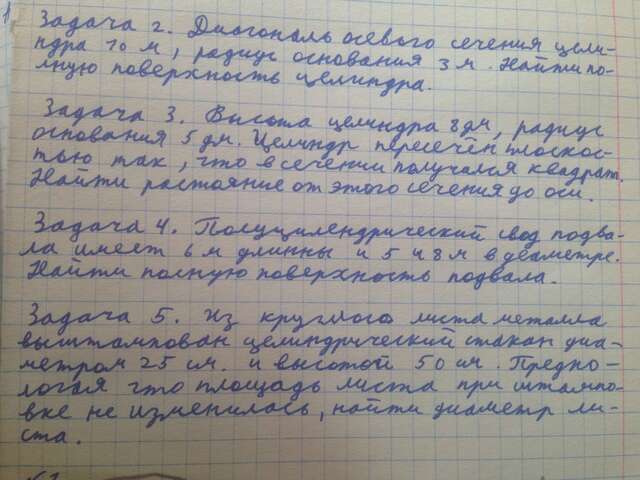 1
Задача 2. Диагональ осевого сечения цили-
ндра 10 м, радиус основания 3 м. Найти по-
лную поверхность цилиндра.
Задача 3. Высота цилиндра 8 дм, радиус
основания 5 дм. Цилиндр пересечен плоскос-
тью так, что в сечении получился квадрат.
Найти расстояние от этого сечения до оси.
Задача 4. Полуцилиндрический свод подва-
ла имеет 6 м длинны и 5 и 8 м в диаметре.
Найти полную поверхность подвала.
Задача 5. Из круглого листа металла
выштампован цилиндрический стакан диа-
метром 25 см. и высотой 50 см. Предпо-
логая что площадь листа при штампо-
вке не изменилась, найти диаметр ли-
ста.